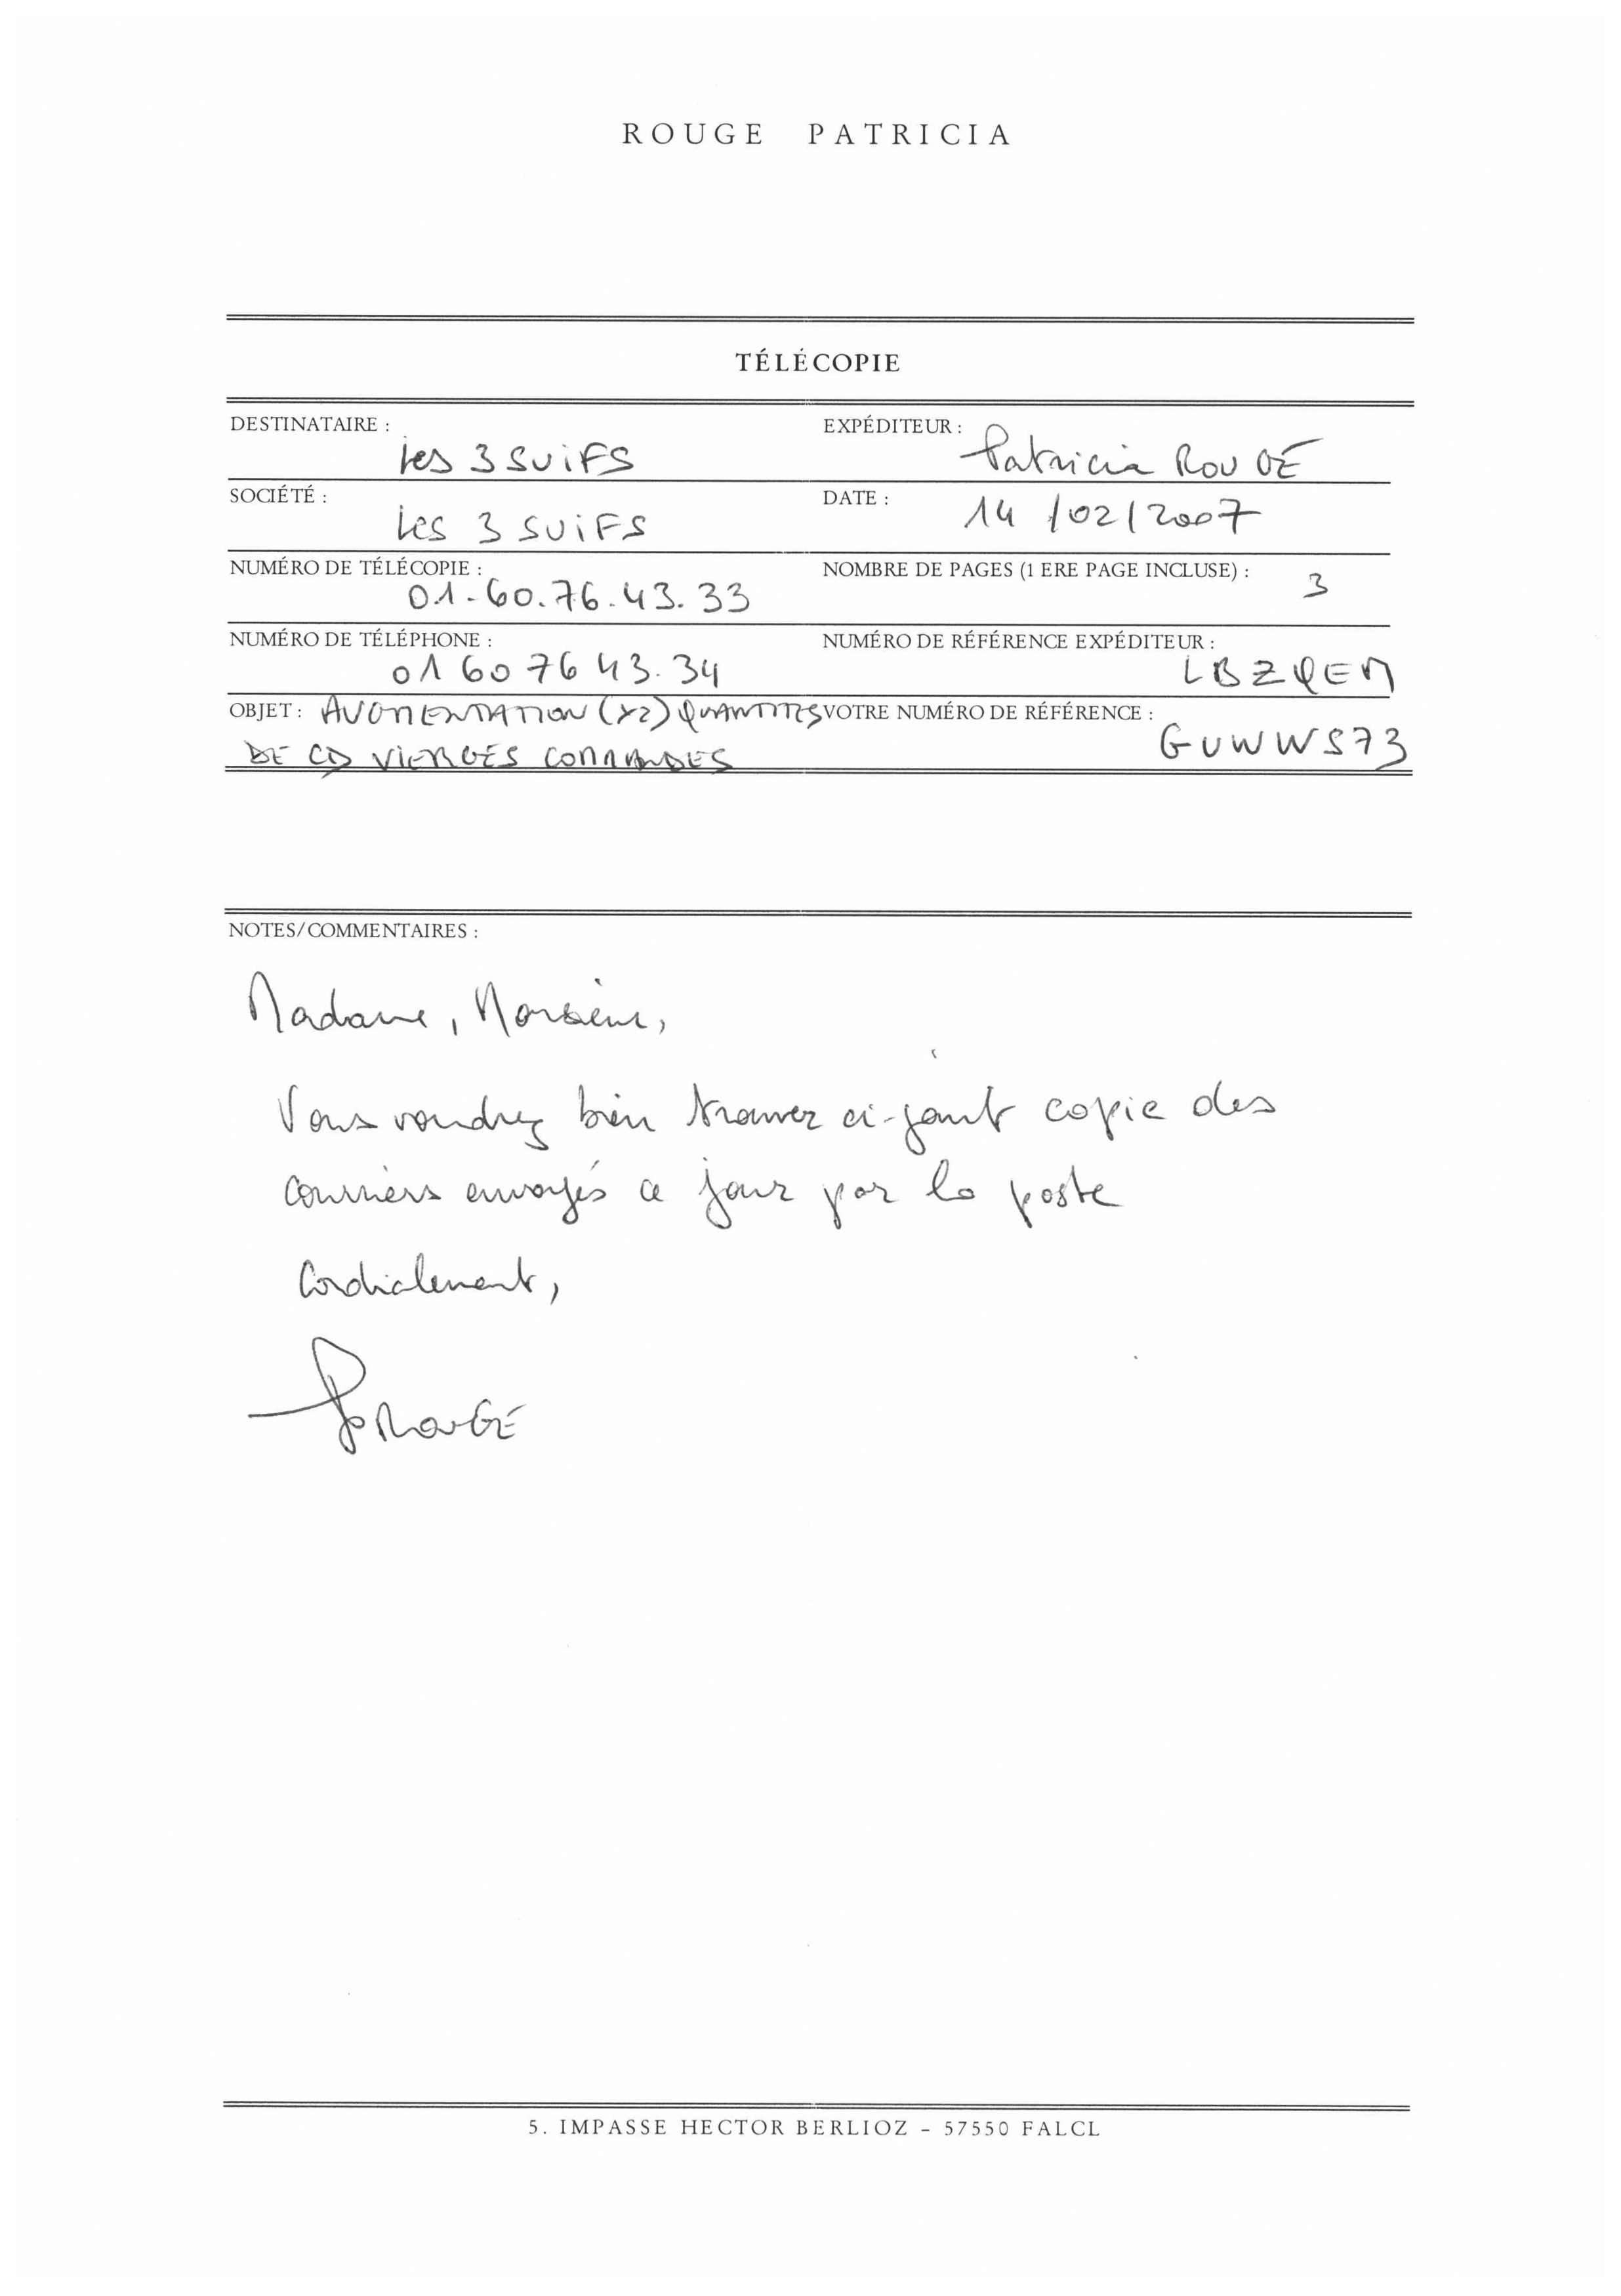 ROUGE PATRICIA
TÉLÉCOPIE
DESTINATAIRE : Les 3 SUiFS
EXPÉDITEUR : Patricia ROUGE
SOCIÉTÉ : Les 3 SUiFS
DATE : 14/02/2007
NUMÉRO DE TÉLÉCOPIE : 01.60.76.43.33
NOMBRE DE PAGES (1 ERE PAGE INCLUSE) : 3
NUMÉRO DE TÉLÉPHONE : 01 60 76 43.34
NUMÉRO DE RÉFÉRENCE EXPÉDITEUR : LBZQEM
OBJET : AUGMENTATION (X2) QUANTITES
DE CD VIERGES COMMANDES
VOTRE NUMÉRO DE RÉFÉRENCE : GUWWS73
NOTES/COMMENTAIRES :
Madame, Monsieur,
Vous voudrez bien trouver ci-joint copie des
courriers envoyés ce jour par la poste
Cordialement,
PROUGE
5. IMPASSE HECTOR BERLIOZ – 57550 FALCL